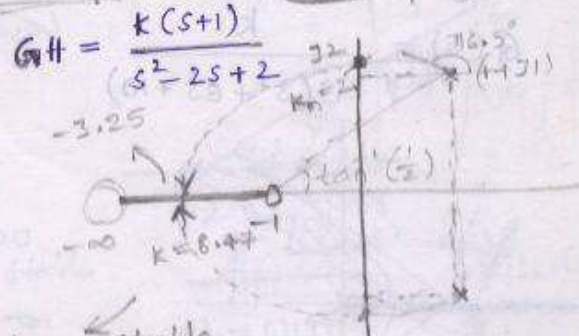 GH = K(S+1)
s²-2s+2
j2
116.5°
(1+j1)
-3.25
tan⁻¹(1/2)
-∞
K=8.47
-1